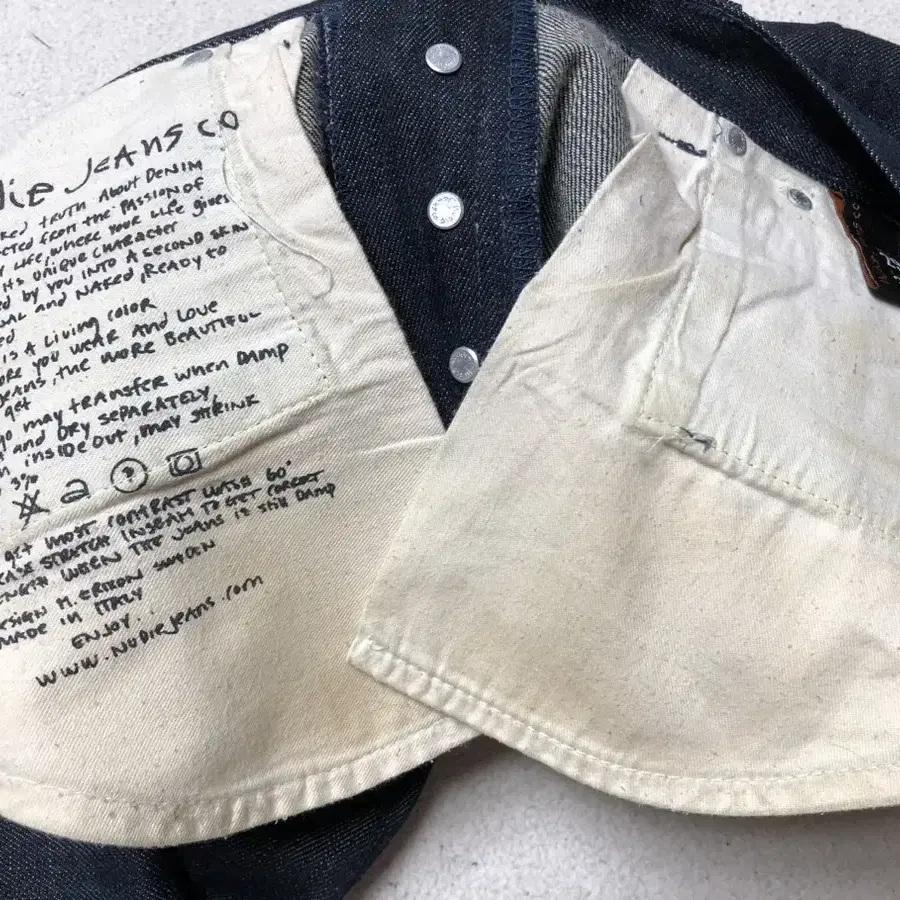 die JEANS CO
ked TRUTH ABOUT DENIM
cted FROM THE PASSION OF
y LIFE, WHERE YOUR LIFE gives
its UNIQUE CHARACTER
ed BY YOU INTO A SECOND SKIN
NAL AND NAKED, READY TO
ed
is A LIVING COLOR
ORE YOU WEAR AND LOVE
JEANS, THE MORE BEAUTIFUL
get
go may TRANSFER WHEN DAMP
AND DRY SEPARATELY,
n inside out, may SHRINK
3%
get MOST CONTRAST WASH 60°
EASE STRETCH INSEAM TO GET
ENGTH WHEN THE JEANS is STILL DAMP
ESIGN M. ERIXON SWEDEN
MADE IN ITALY
ENJOY.
WWW.NUDIEJEANS.COM